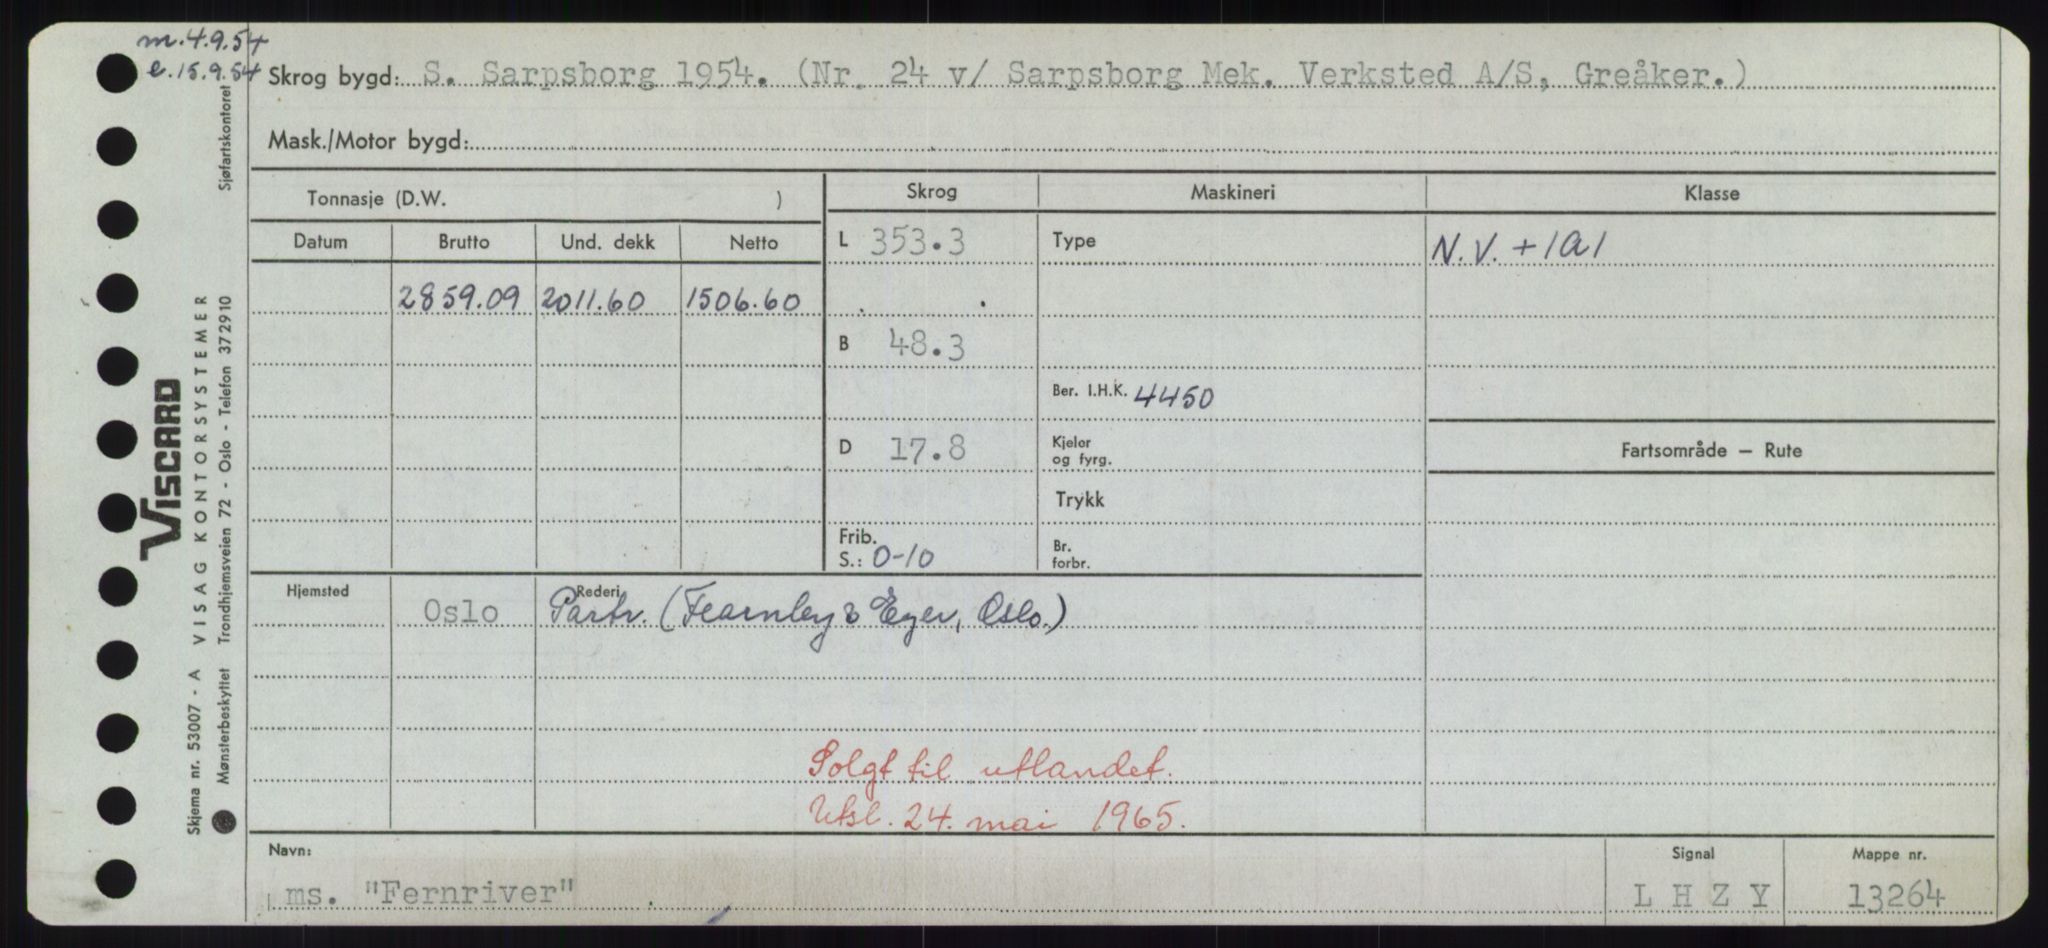 m. 4.9.54
e. 15.9.54
Skrog bygd: S. Sarpsborg 1954. (Nr. 24 v/ Sarpsborg Mek. Verksted A/S, Greåker.)
Mask./Motor bygd:
Tonnasje (D.W. )
Skrog Maskineri Klasse
Datum Brutto Und. dekk Netto
L 353.3 Type N.V. +1A1
2859.09 2011.60 1506.60
B 48.3
Ber. I.H.K. 4450
D 17.8 Kjeler og fyrg.
Fartsområde — Rute
Trykk
Frib. S.: 0-10 Br. forbr.
Hjemsted Oslo Rederi Partr. (Fearnley & Eger, Oslo.)
Solgt til utlandet.
Utsl. 24. mai 1965.
Navn: ms. "Fernriver"
Signal L H Z Y
Mappe nr. 13264
VISCARD
Skjema nr. 53007 - A VISAG KONTORSYSTEMER
Mønsterbeskyttet Trondhjemsveien 72 - Oslo - Telefon 372910 Sjøfartskontoret